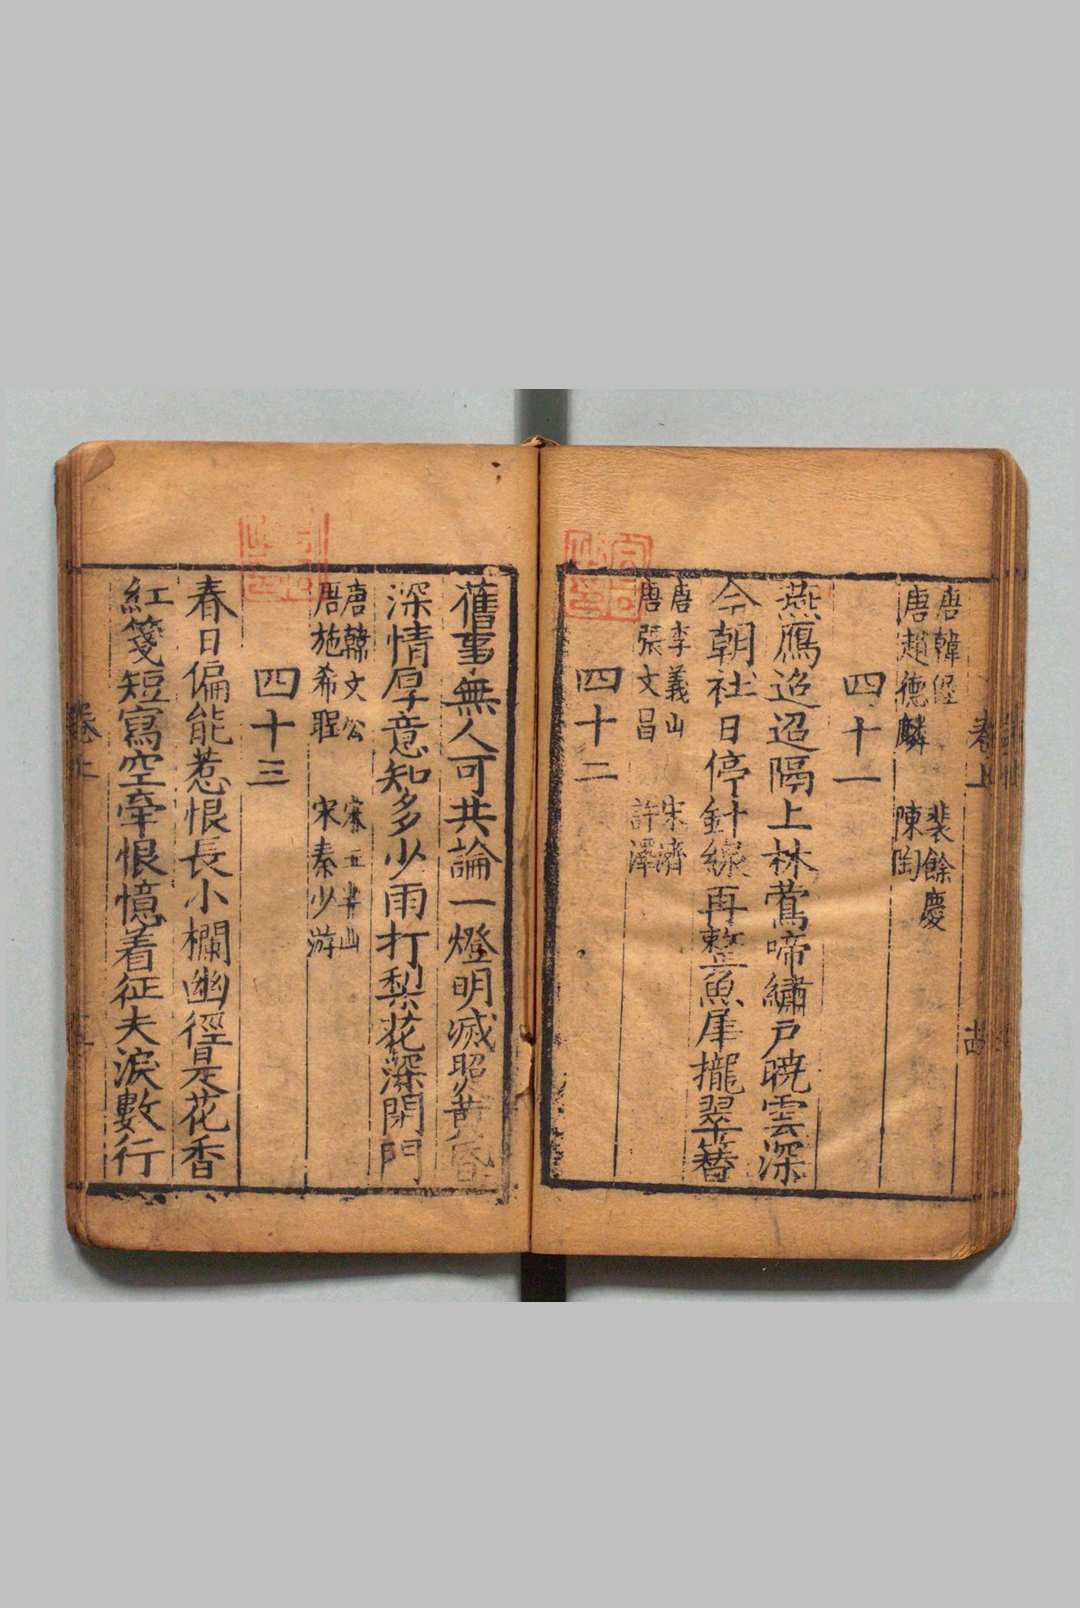 唐韓偓 裴餘慶
唐趙德麟 陳陶
四十一
燕鴈迢迢隔上林鶯啼繡戶曉雲深
今朝社日停針線再整魚犀攏翠簪
唐李義山 宋濟
唐張文昌 許渾
四十二
舊事無人可共論一燈明滅照黃昏
深情厚意知多少雨打梨花深閉門
唐韓文公
唐施希聖 宋秦少游
四十三
春日偏能惹恨長小欄幽徑是花香
紅箋短寫空牽恨憶着征夫淚數行
卷上
卷上